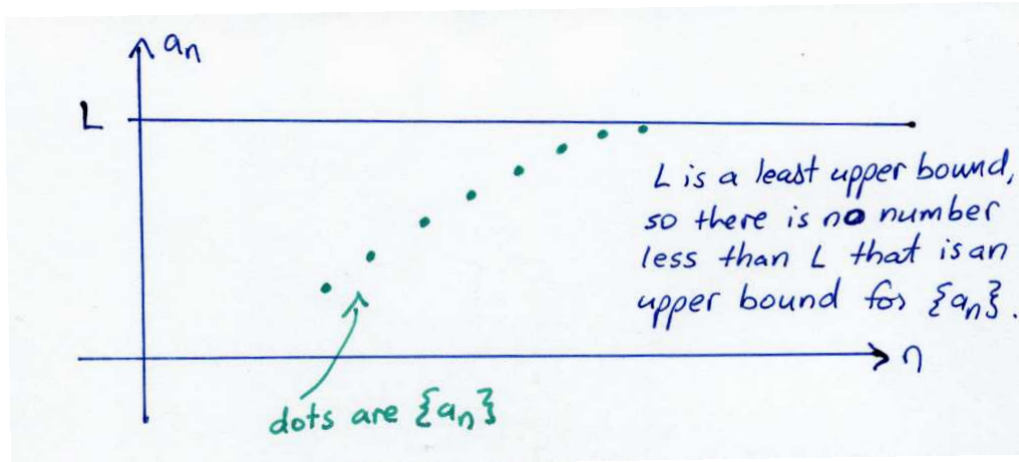 aₙ
L
L is a least upper bound,
so there is no number
less than L that is an
upper bound for {aₙ}.
n
dots are {aₙ}